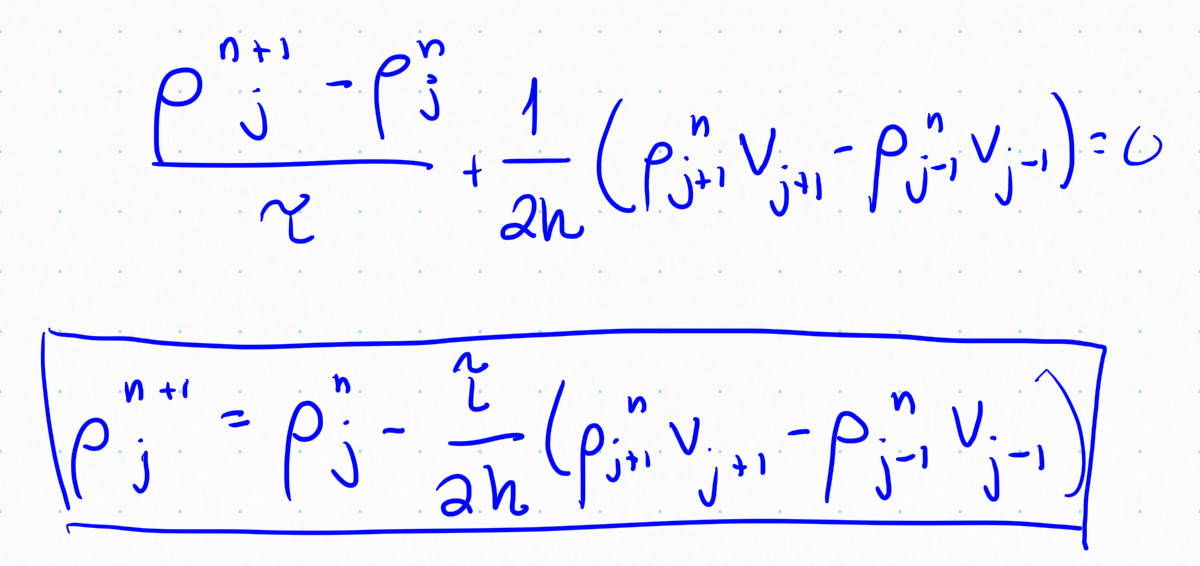 \frac{\rho_j^{n+1} - \rho_j^n}{\tau} + \frac{1}{2h} \left( \rho_{j+1}^n v_{j+1} - \rho_{j-1}^n v_{j-1} \right) = 0
\rho_j^{n+1} = \rho_j^n - \frac{\tau}{2h} \left( \rho_{j+1}^n v_{j+1} - \rho_{j-1}^n v_{j-1} \right)